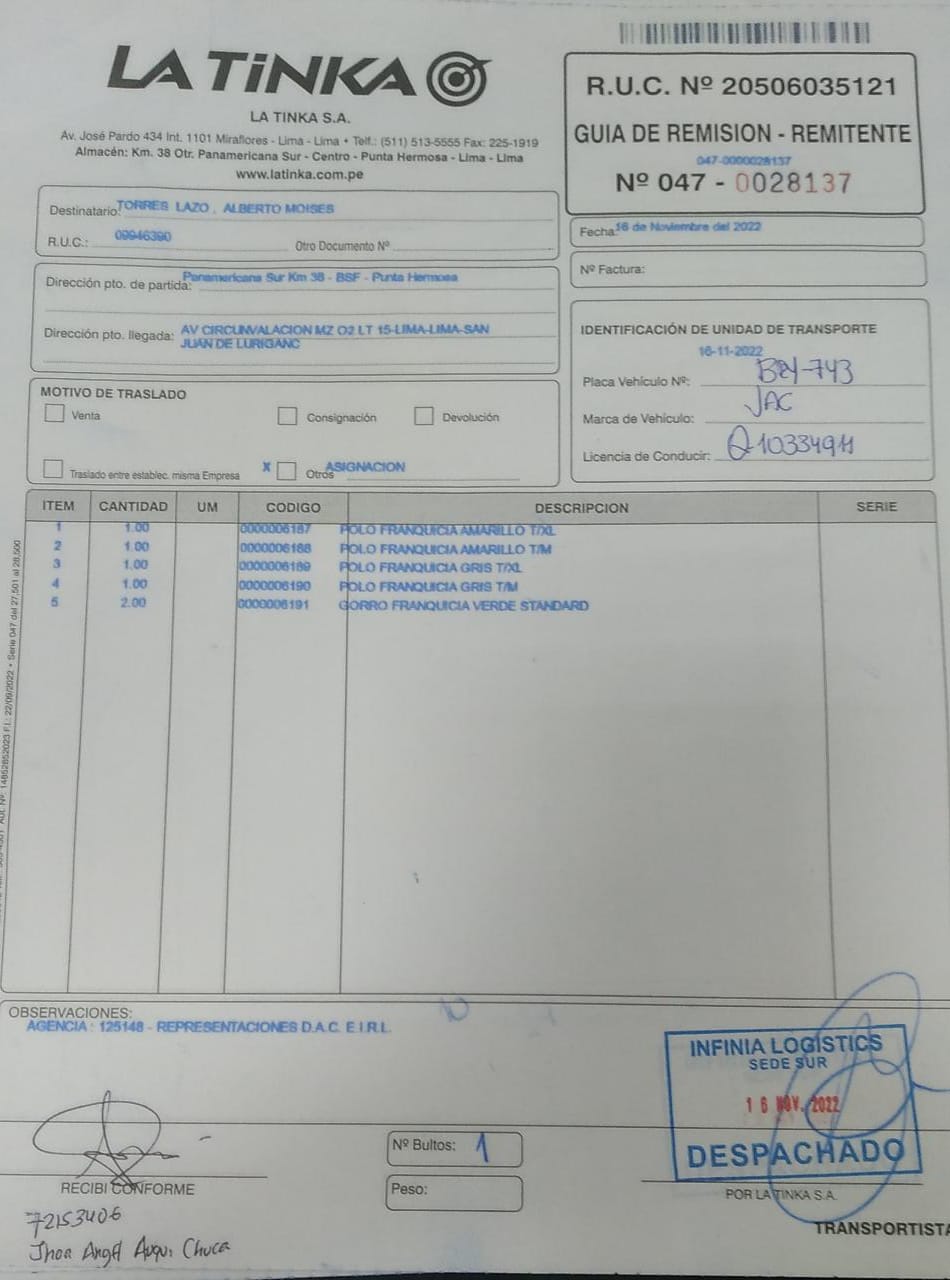 LA TiNKA
LA TINKA S.A.
Av. José Pardo 434 Int. 1101 Miraflores - Lima - Lima • Telf.: (511) 513-5555 Fax: 225-1919
Almacén: Km. 38 Otr. Panamericana Sur - Centro - Punta Hermosa - Lima - Lima
www.latinka.com.pe
R.U.C. Nº 20506035121
GUIA DE REMISION - REMITENTE
047-0000028137
Nº 047 - 0028137
Destinatario: TORRES LAZO , ALBERTO MOISES
R.U.C.: 09946390 Otro Documento Nº
Fecha: 16 de Noviembre del 2022
Nº Factura:
Dirección pto. de partida: Panamericana Sur Km 38 - BSF - Punta Hermosa
Dirección pto. llegada: AV CIRCUNVALACION MZ O2 LT 15-LIMA-LIMA-SAN
JUAN DE LURIGANC
IDENTIFICACIÓN DE UNIDAD DE TRANSPORTE
16-11-2022
Placa Vehículo Nº:
Marca de Vehículo: JAC
Licencia de Conducir: Q10334911
MOTIVO DE TRASLADO
Venta Consignación Devolución
Traslado entre establec. misma Empresa X Otros ASIGNACION
ITEM CANTIDAD UM CODIGO DESCRIPCION SERIE
1 1.00 0000006187 POLO FRANQUICIA AMARILLO T/XL
2 1.00 0000006188 POLO FRANQUICIA AMARILLO T/M
3 1.00 0000006189 POLO FRANQUICIA GRIS T/XL
4 1.00 0000006190 POLO FRANQUICIA GRIS T/M
5 2.00 0000006191 GORRO FRANQUICIA VERDE STANDARD
F.I.: 22/09/2022 • Serie 047 del 27,501 al 28,500
OBSERVACIONES:
AGENCIA : 125148 - REPRESENTACIONES D.A.C. E.I.R.L.
INFINIA LOGISTICS
SEDE SUR
16 NOV. 2022
DESPACHADO
Nº Bultos: 1
Peso:
RECIBI CONFORME
POR LA TINKA S.A.
72153406
Jhoa Angel Auqui Chuca
TRANSPORTISTA